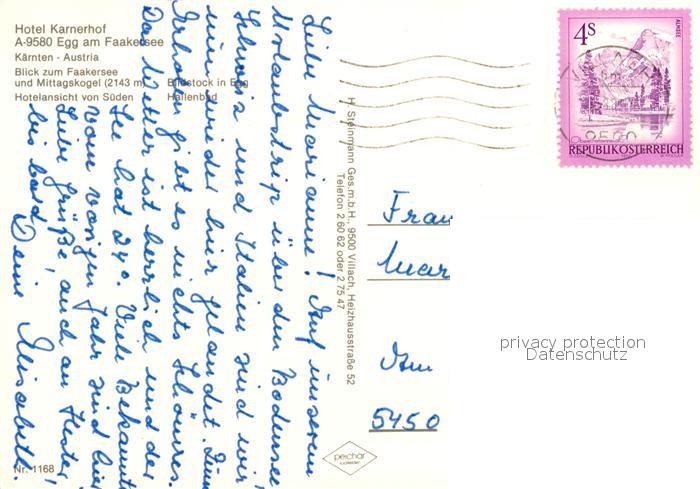 Hotel Karnerhof
A-9580 Egg am Faakersee
Kärnten - Austria
Blick zum Faakersee
und Mittagskogel (2143 m)
Hotelansicht von Süden
Bildstock in Egg
Hallenbad
Liebe Marianne! Auf unserem
Urlaubstrip über den Bodensee
Schweiz und Italien sind wir
nun wieder hier gelandet. Zum
Erholen gibt es nichts Schöneres.
Das Wetter ist herrlich und der
See hat 24°. Viele Bekannte
vom vorigen Jahr sind hier
Liebe Grüße, auch an Hester,
bis bald Deine Elisabeth.
H. Steinmann Ges.m.b.H., 9500 Villach, Heizhausstraße 52
Telefon 2 60 62 oder 2 75 47
4S
ALMSEE
9580
REPUBLIK ÖSTERREICH
Frau
Mar
Am
5450
privacy protection
Datenschutz
Nr. 1168
peichar